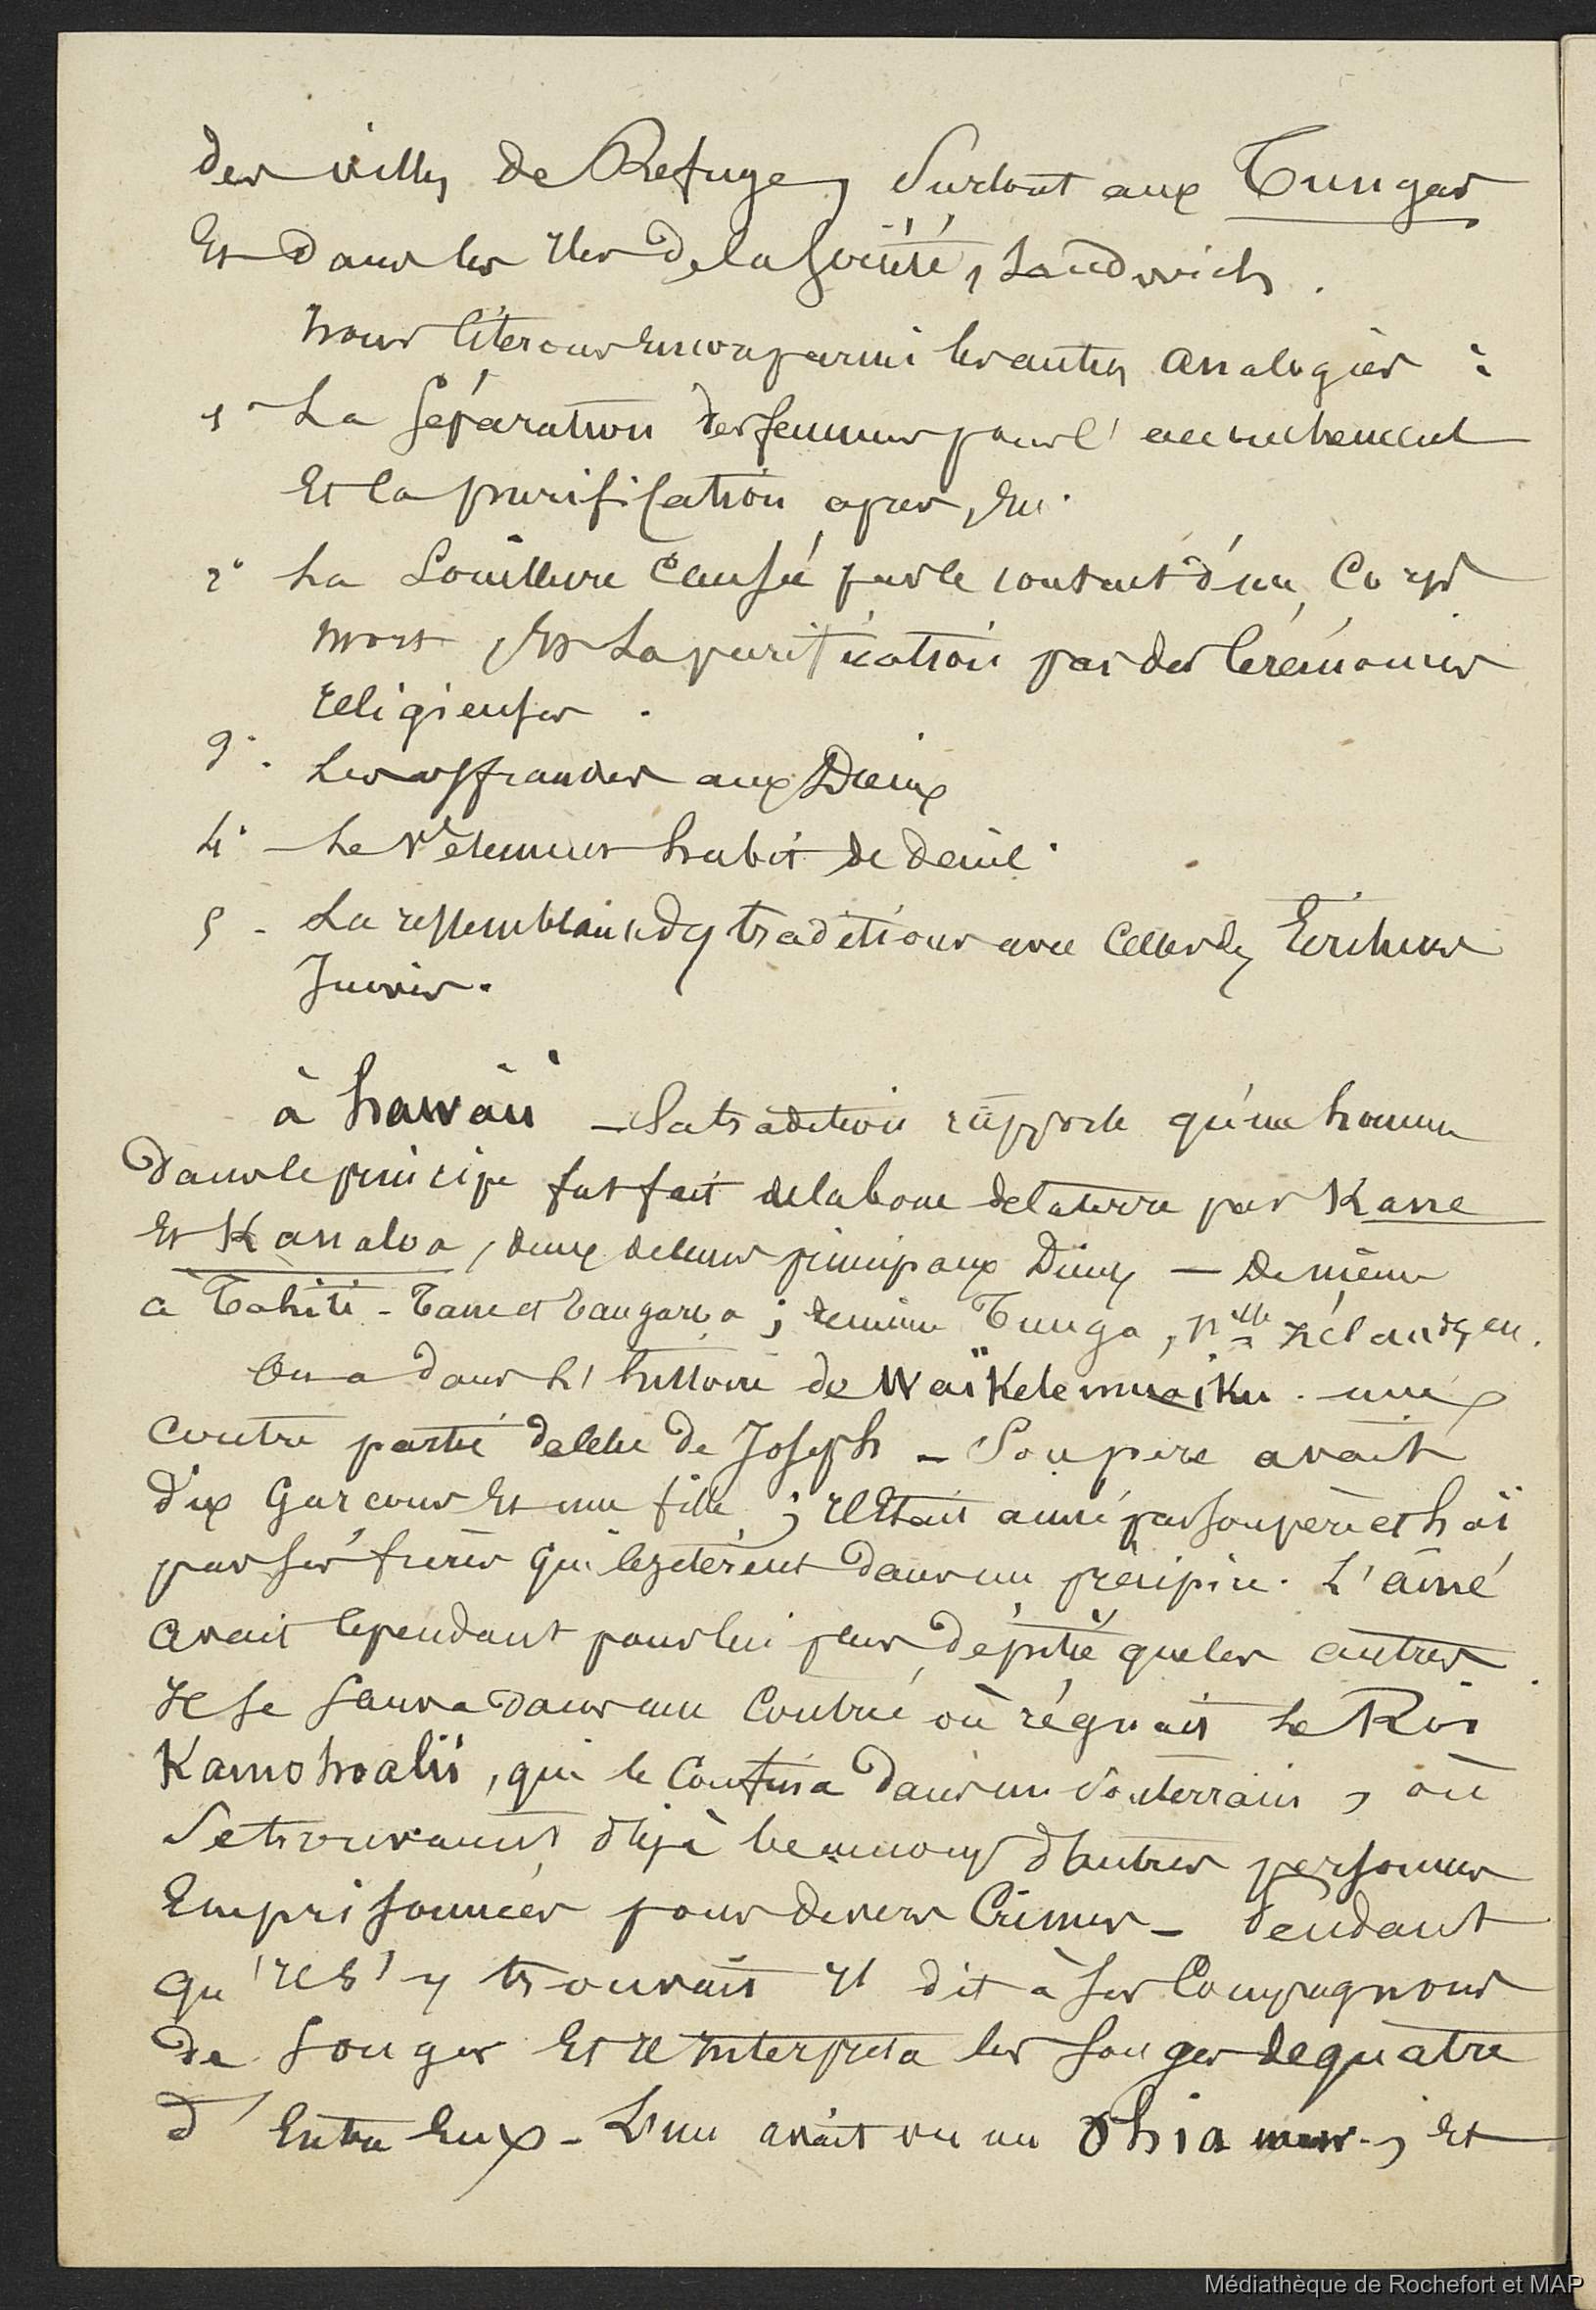 des villes de Refuge, surtout aux Tungas
Et dans les Iles de la Société, Sandwich.
Nous Citerons encore parmi les autres analogies :
1° La Séparation des femmes pour l'accouchement
Et la purification après, etc.
2° La Souillure Causée par le contact d'un Corps
mort, Et La purification par des Cérémonies
religieuses.
3°. Les offrandes aux Dieux
4° Le Vêtement habit de deuil.
5 - La ressemblance des traditions avec Celles des Ecritures
Juives.
à hawaïi - La tradition rapporte qu'un homme
Dans le principe fut fait de la boue de la terre par Kane
Et Kanaloa, deux de leurs principaux Dieux - De même
à Tahiti - Tane et Tangaroa ; de même Tunga, Nlle Zélande, etc.
On a dans L'histoire de Waikelemuaiku. une
Contre partie de celle de Joseph - Son père avait
dix Garcons Et une fille ; Il Etait aimé par son père et haï
par ses frères qui le jetèrent dans un précipice. L'aîné
avait Cependant pour lui plus de pitié que les autres.
Il se sauva dans une Contrée où régnait Le Roi
Kamohoalii, qui le Confina dans un Souterrain, où
Se trouvaient déjà beaucoup d'autres personnes
Emprisonnées pour divers Crimes - Pendant
qu'Il s'y trouvait Il dit à ses Compagnons
de songer Et Il Interpréta les songes de quatre
d'Entre Eux - L'un avait vu un Ohia mur, Et
Médiathèque de Rochefort et MAP